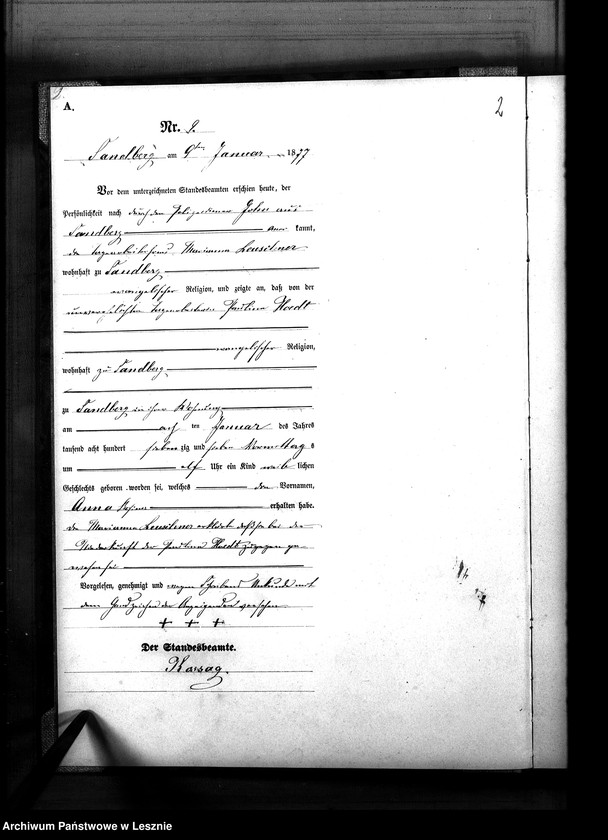 2
A.
Nr. 2.
Sandberg am 9ten Januar 1877
Vor dem unterzeichneten Standesbeamten erschien heute, der
Persönlichkeit nach durch den John aus
Sandberg kannt,
die Marianna
wohnhaft zu Sandberg
evangelischer Religion, und zeigte an, daß von der
unverehelichten Paulina Hoedt
evangelischer Religion,
wohnhaft zu Sandberg
zu Sandberg in ihrer Wohnung
am acht ten Januar des Jahres
tausend acht hundert siebenzig und sieben Vormittag s
um elf Uhr ein Kind weiblichen
Geschlechts geboren worden sei, welches den Vornamen,
Anna erhalten habe.
Die Marianna erklärt daß sie bei der
Niederkunft der Paulina Hoedt zugegen ge-
wesen sei
Vorgelesen, genehmigt und wegen Schreibens Unkunde mit
dem Handzeichen der Anzeigenden versehen
+ + +
Der Standesbeamte.
Archiwum Państwowe w Lesznie